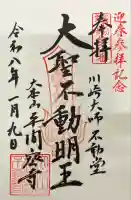 迎春参拝記念
奉拝
川崎大師 不動堂
大聖不動明王
大本山 平間寺
令和八年一月九日